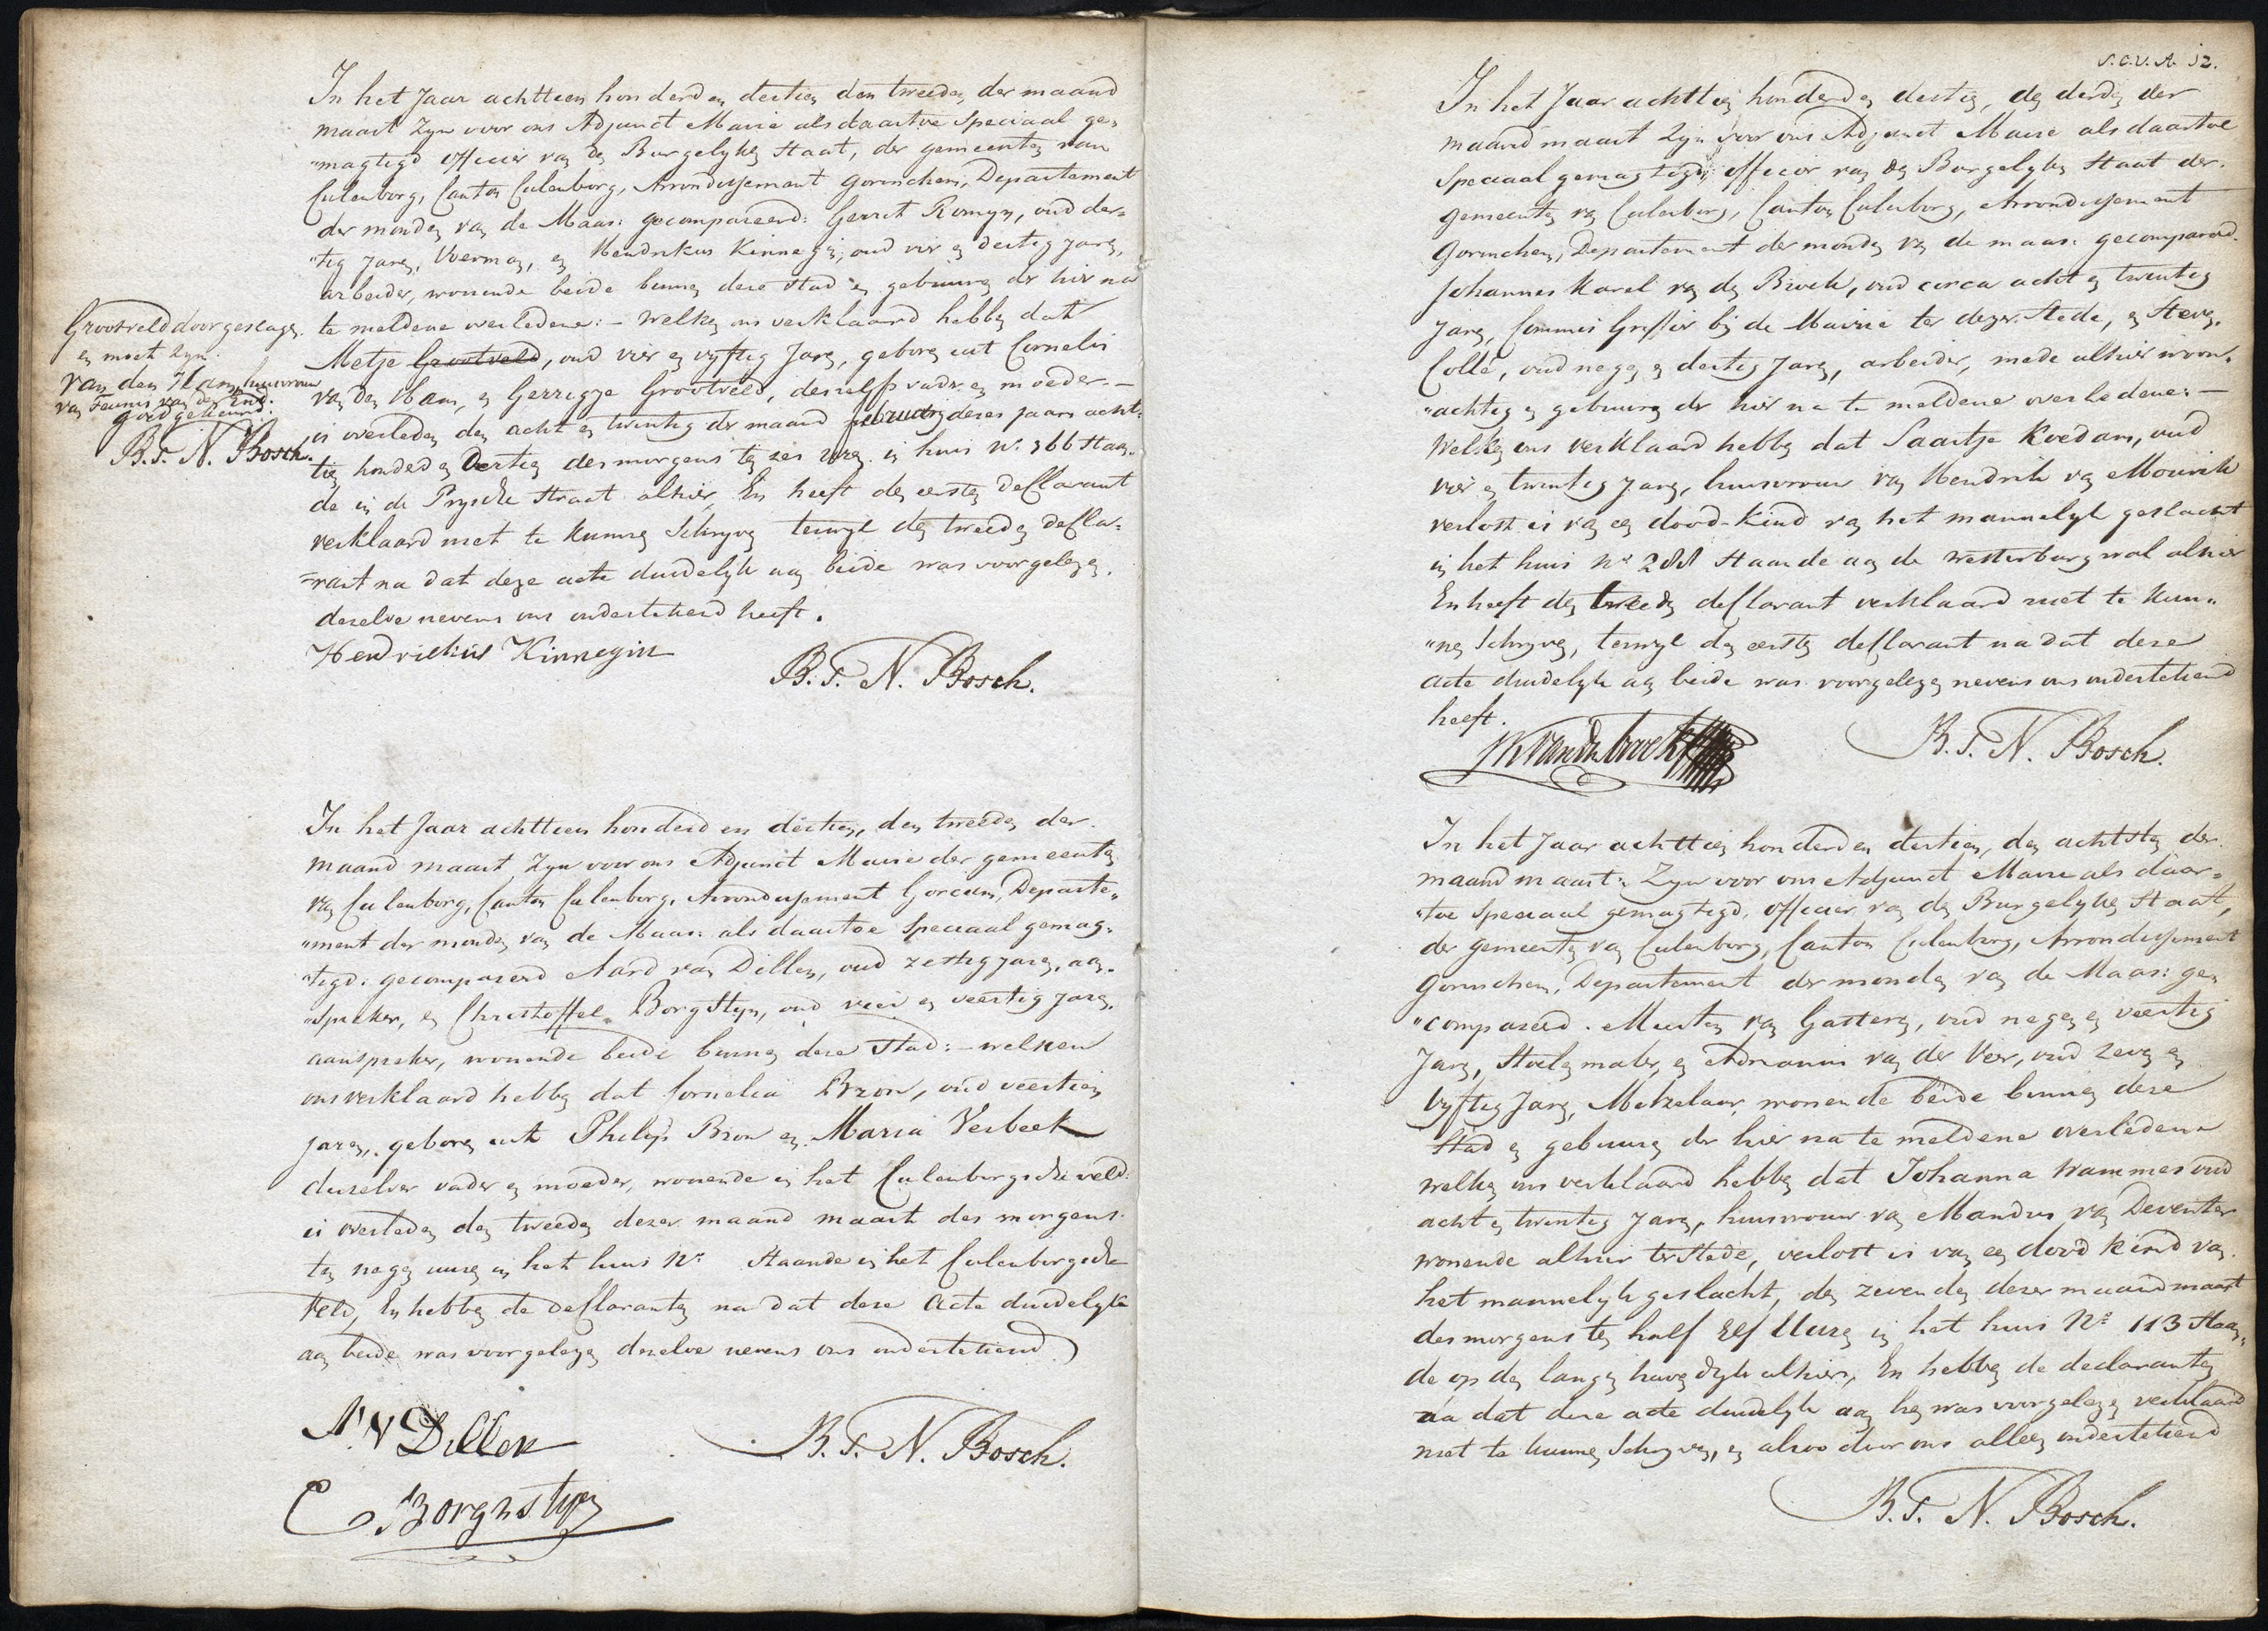 In het Jaar achtteen honderd en dertien den tweeden der maand
maart Zyn voor ons Adjunct Maire als daartoe Speciaal ge„
"magtigd officier van den Burgelyken Staat, der gemeenten van
Culenborg, Canton Culenborg, Arrondissement Gorinchem, Departement
der monden van de Maas: gecompareerd: Gerrit Romyn, oud der=
"tig Jaren, Voerman, en Hendrikus Kinnegin, oud vier en dertig jaren,
arbeider, wonende beide binnen deze Stad en gebuuren der hier na
te meldene overledene:- Welken ons verklaard hebben dat
Metje Grootveld, oud vier en vyftig Jaren, geboren uit Cornelis
van den Ham, en Gerrigje Grootveld, deszelfs vader en moeder.-
is overleden den acht en twintig der maand februarij dezes jaars acht„
tien honderd en Dertien des morgens ten zes uren in huis No. 366 Staan„
de in de Prysche Straat alhier, En heeft den eersten Deklarant
verklaard niet te kunnen Schryven terwyl den tweeden dekla=
=rant na dat deze acte duidelyk aan beide was voorgelezen,
dezelve nevens ons ondertekend heeft.
Hendriekus Kinnegin
B. T. N. Bosch.
Grootveld doorgeslagen
en moet zyn
van den Ham, huisvrouw
van Teunis van der End:
goed gekeurd:
B. T. N. Bosch.
In het Jaar achtteen honderd en dertien, den tweeden der
maand maart Zyn voor ons Adjunct Maire der gemeenten
van Culenborg, Canton Culenborg, Arrondissement Gorcum, Departe„
"ment der monden van de Maas: als daartoe Speciaal gemag„
"tigd: gecompareerd Aard van Dillen, oud zestig jaren, aan„
"spreker, en Christoffel Borgstyn, oud vier en veertig jaren,
aanspreker, wonende beide binnen deze Stad:- welken
ons verklaard hebben dat Cornelia Bron, oud veertien
jaren, geboren uit Philips Bron en Maria Verbeek
derzelver vader en moeder, wonende in het Culenborgsche veld:
is overleden den tweeden dezer maand maart des morgens
ten negen uuren in het huis No Staande in het Culenborgsche
Veld, En hebben de deklaranten na dat deze Acte duidelyk
aan beide was voorgelezen dezelve nevens ons ondertekend
A. V Dillen
B. T. N. Bosch.
C Borgnstyn
12.
In het Jaar achttien honderd en dertien, den derden der
maand maart Zyn voor ons Adjunct Maire als daartoe
Speciaal gemagtigd officier van den Burgelyken Staat der
gemeenten van Culenborg, Canton Culenborg, Arrondissement
Gorinchem, Departement der monden van de maas: gecompareerd.
Johannes Karel van den Broek, oud circa acht en twintig
Jaren, Commis Greffier bij de Mairie ter dezer Stede, en Steven
Collé, oud negen en dertig Jaren, arbeider, mede alhier woon„
"achtig en gebuuren der hier na te meldene overledene:-
Welken ons verklaard hebben dat Saartje Koedam, oud
vier en twintig Jaren, huisvrouw van Hendrik van Mourik
verlost is van een dood-kind van het mannelyk geslacht
in het huis No 288 Staande aan de Westerburg wal alhier
En heeft den tweeden deklarant verklaard niet te kun„
"nen Schryven, terwyl den eersten deklarant na dat deze
acte duidelyk aan beide was voorgelezen nevens ons ondertekend
heeft.
JK van den broek
B. T. N. Bosch.
In het Jaar achttien honderd en dertien, den achtsten der
maand maart: Zyn voor ons Adjunct Maire als daar=
"toe Speciaal gemagtigd, officier van den Burgelyken Staat,
der gemeenten van Culenborg, Canton Culenborg, Arrondissement
Gorinchem, Departement der monden van de Maas: ge„
"compareerd. Meerten van Gasteren, oud negen en veertig
Jaren, Stoelenmaker, en Adrianus van der Veer, oud zeven en
vyftig Jaren, Metzelaar, wonende beide binnen deze
Stad en gebuuren der hier na te meldene overledene
welken ons verklaard hebben dat Johanna Wammes oud
acht en twintig Jaren, huisvrouw van Mandus van Deventer
wonende alhier ter Stede, verlost is van een dood kind van
het mannelyk geslacht, den zevenden dezer maand maart
des morgens ten half Elf Uuren in het huis No 113 Staan„
de op den langen havendyk alhier, En hebben de declaranten
na dat deze acte duidelyk aan hen was voorgelezen verklaard
niet te kunnen Schryven, en alzoo door ons alleen ondertekend
B. T. N. Bosch.